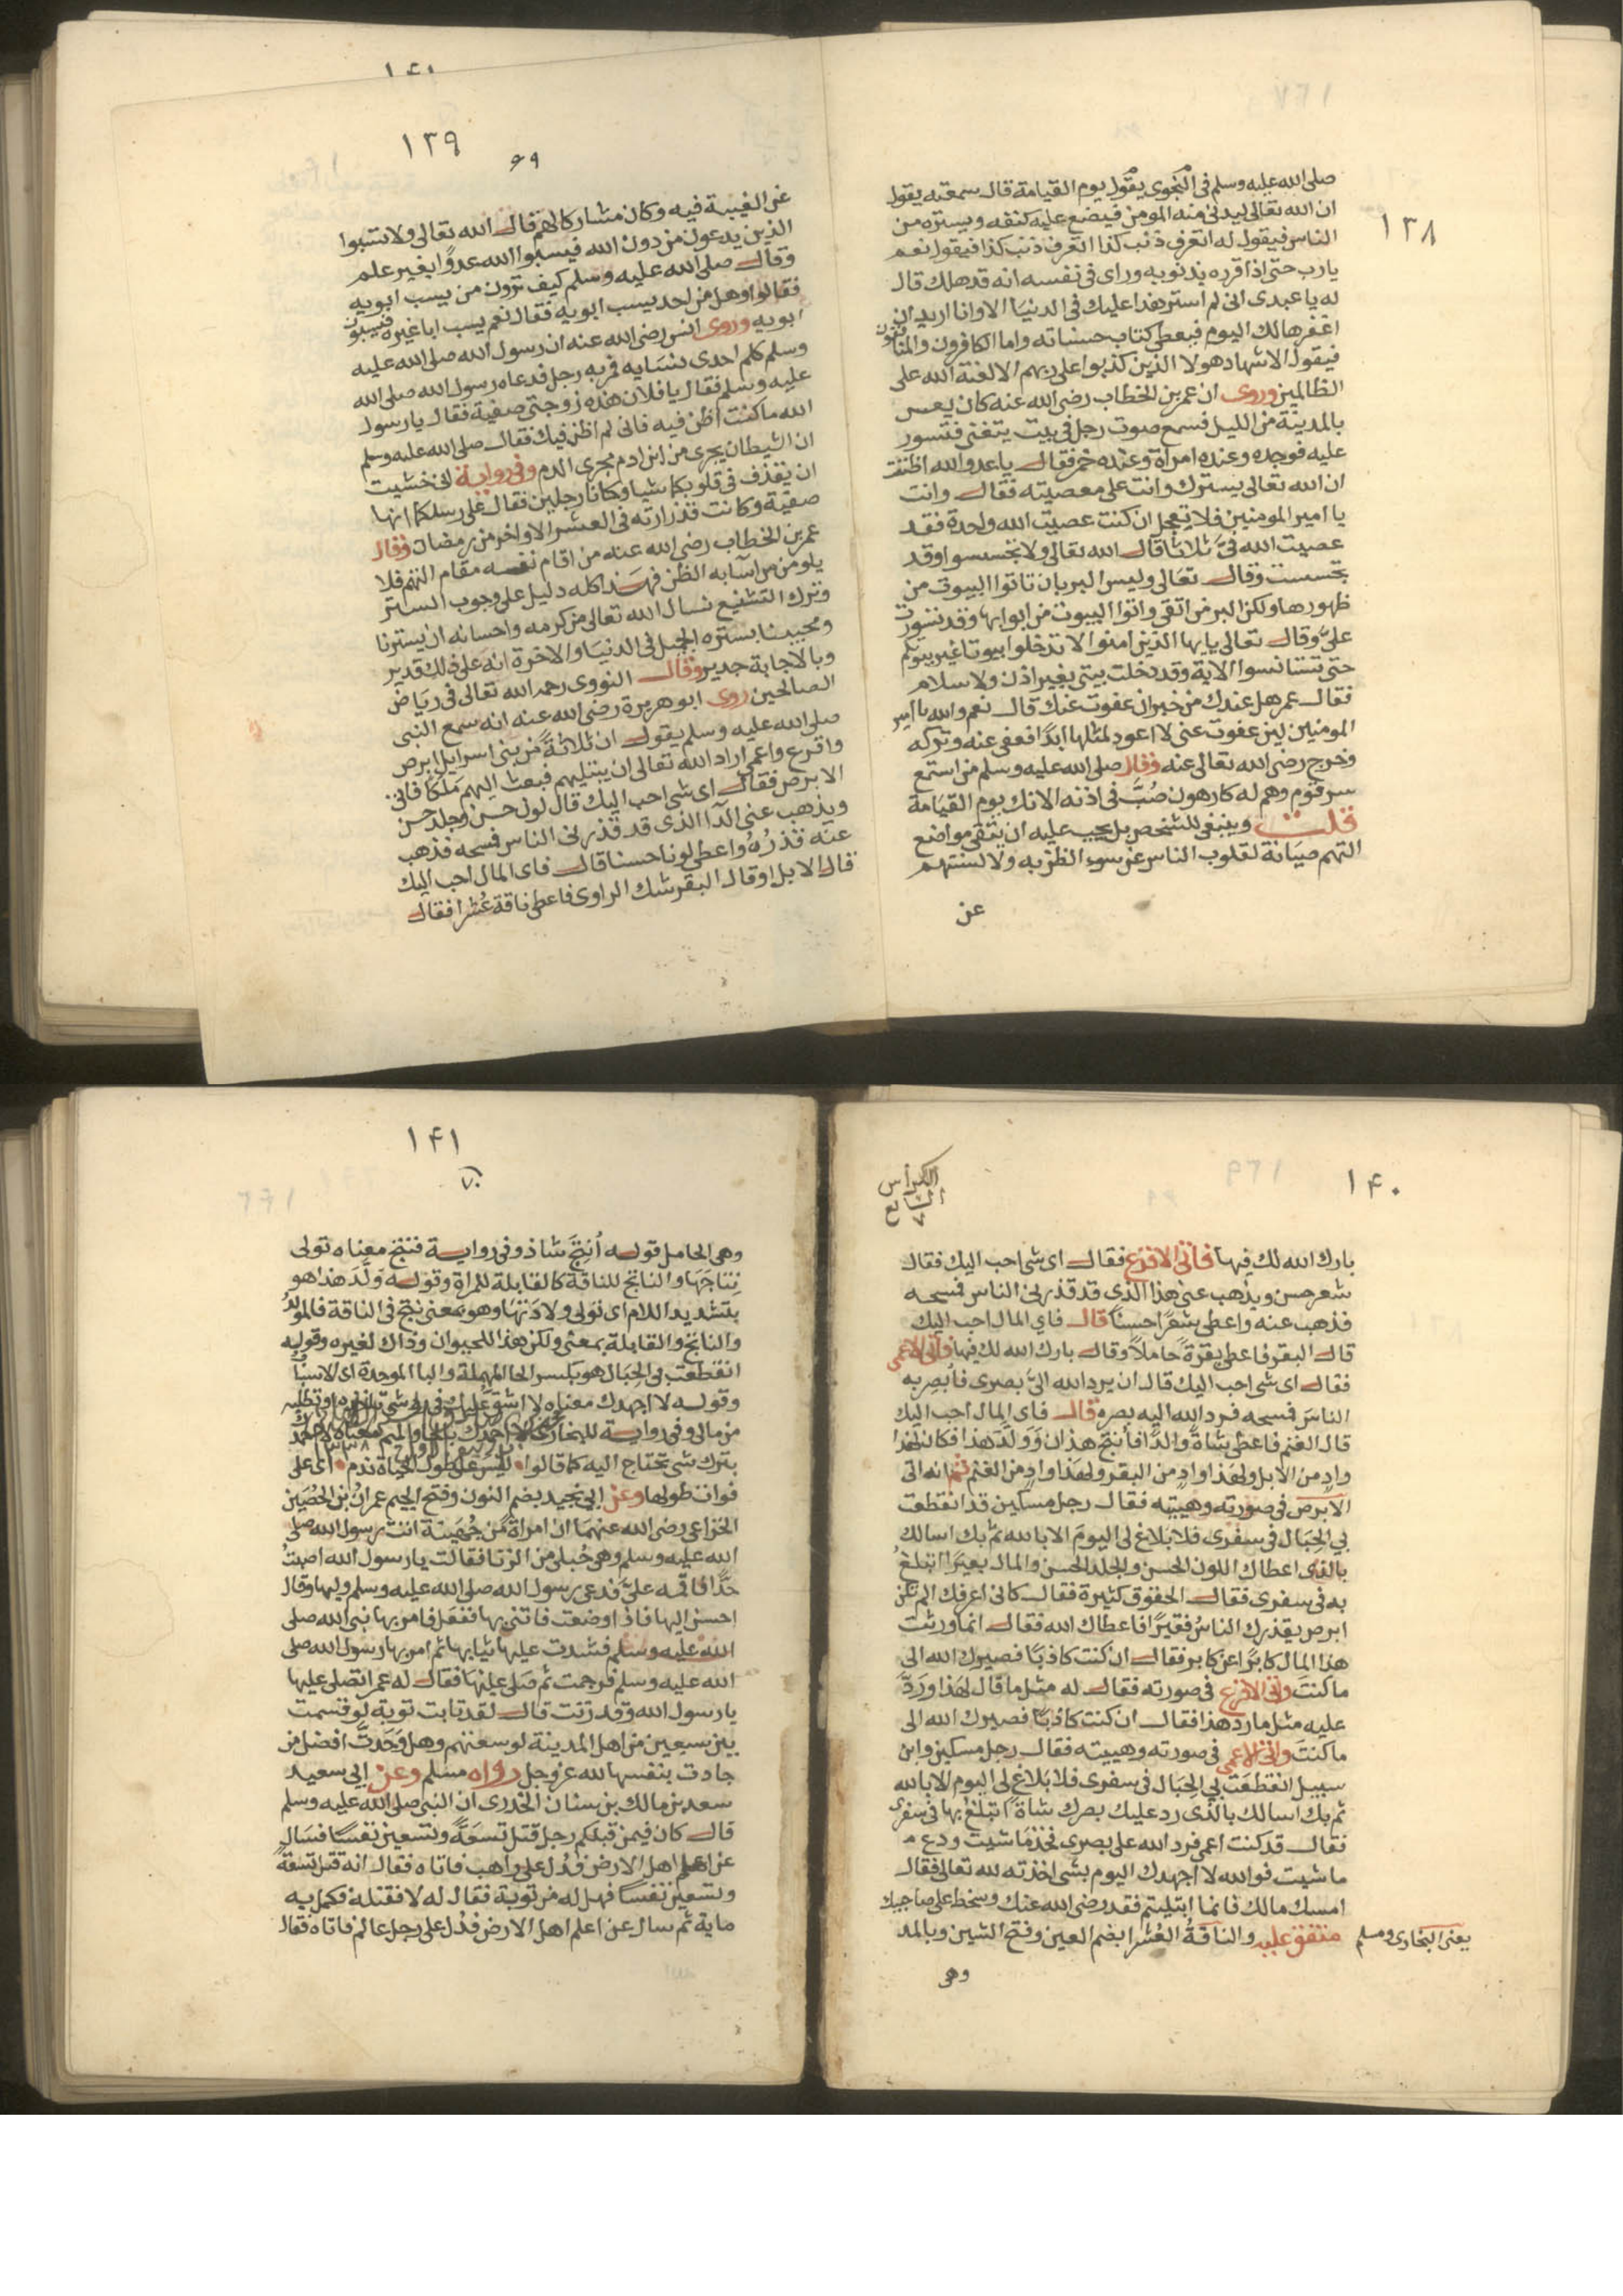 ١٣٨
صلى الله عليه وسلم فى النجوى يقول يوم القيامة قال سمعته يقول
ان الله تعالى ليدنى منه المومن فيضع عليه كنفه ويستره من
الناس فيقول له اتعرف ذنب كذا اتعرف ذنب كذا فيقول نعم
يارب حتى اذا قرره بذنوبه وراى فى نفسه انه قد هلك قال
له يا عبدى انى لم استرهذا عليك فى الدنيا الا وانا اريد ان
اغفرها لك اليوم فيعطى كتاب حسناته واما الكافرون والمنافقون
فيقول الاشهاد هولا الذين كذبوا على ربهم الا لعنة الله على
الظالمين وروى ان عمر بن الخطاب رضى الله عنه كان يعس
بالمدينة من الليل فسمع صوت رجل فى بيت يتغنى فتسور
عليه فوجده وعنده امراة وعنده خمر فقال يا عدو الله اظننت
ان الله تعالى يسترك وانت على معصيته فقال وانت
يا امير المومنين فلا تعجل ان كنت عصيت الله واحدة فقد
عصيت الله فىّ ثلاثا قال الله تعالى ولا تجسسوا وقد
تجسست وقال تعالى وليس البر بان تاتوا البيوت من
ظهورها ولكن البر من اتقى واتوا البيوت من ابوابها وقد تسورت
علىّ وقال تعالى يايها الذين امنوا لا تدخلوا بيوتا غير بيوتكم
حتى تستانسوا الاية وقد دخلت بيتى بغير اذن ولا سلام
فقال عمر هل عندك من خير ان عفوت عنك قال نعم والله يا امير
المومنين لين عفوت عنى لا اعود لمثلها ابدًا فعفى عنه وتركه
وخرج رضى الله تعالى عنه وقال صلى الله عليه وسلم من استمع
سر قوم وهم له كارهون صُبَّ فى اذنه الانك يوم القيامة
قلت وينبغى للشخص بل يجب عليه ان يتقى مواضع
التهم صيانة لقلوب الناس عن سوء الظن به ولالسنتهم
عن
١٤١
١٣٩
٦٩
عن الغيبة فيه وكان مشاركا لهم قال الله تعالى ولا تسبوا
الذين يدعون من دون الله فيسبوا الله عدوًا بغير علم
وقال صلى الله عليه وسلم كيف ترون من يسب ابويه
فقالوا وهل من احد يسب ابويه فقال نعم يسب ابا غيره فيسبون
ابويه وروى انس رضى الله عنه ان رسول الله صلى الله عليه
وسلم كلم احدى نسايه فمر به رجل فدعاه رسول الله صلى الله
عليه وسلم فقال يا فلان هذه زوجتى صفية فقال يا رسول
الله ما كنت اظن فيه فانى لم اظن فيك فقال صلى الله عليه وسلم
ان الشيطان يجرى من ابن ادم مجرى الدم وفى رواية انى خشيت
ان يقذف فى قلوبكما شيا وكانا رجلين فقال على رسلكما انها
صفية وكانت قد زارته فى العشر الاواخر من رمضان وقال
عمر بن الخطاب رضى الله عنه من اقام نفسه مقام التهم فلا
يلومن من اسآ به الظن فهذا كله دليل على وجوب الستر
وترك التشنيع نسال الله تعالى من كرمه واحسانه ان يسترنا
ومحبينا بستره الجميل فى الدنيا والاخرة انه على ذلك قدير
وبالاجابة جدير وقال النووى رحمه الله تعالى فى رياض
الصالحين روى ابو هريرة رضى الله عنه انه سمع النبى
صلى الله عليه وسلم يقول ان ثلاثة من بنى اسرايل ابرص
واقرع واعمى اراد الله تعالى ان يبتليهم فبعث اليهم ملكا فاتى
الابرص فقال اى شى احب اليك قال لون حسن وجلد حسن
ويذهب عنى الدآ الذى قد قذرنى الناس فمسحه فذهب
عنه قذره واعطى لونا حسنا قال فاى المال احب اليك
قال الابل او قال البقر شك الراوى فاعطى ناقة عُشرا فقال
١٤٠
الكراس
السابع
٧
بارك الله لك فيها فاتى الاقرع فقال اى شى احب اليك فقال
شعر حسن ويذهب عنى هذا الذى قد قذرنى الناس فمسحه
فذهب عنه واعطى شعرًا حسنًا قال فاي المال احب اليك
قال البقر فاعطى بقرة حاملًا وقال بارك الله لك فيها فاتى الاعمى
فقال اى شى احب اليك قال ان يرد الله الىّ بصرى فابصر به
الناس فمسحه فرد الله اليه بصره قال فاى المال احب اليك
قال الغنم فاعطى شاة والدًا فأنتج هذان وَوَلَّدَ هذا فكان لهذا
وادٍ من الابل ولهذا وادٍ من البقر ولهذا وادٍ من الغنم ثم انه اتى
الابرص فى صورته وهييته فقال رجل مسكين قد انقطعت
بي الحِبَال فى سفرى فلا بلاغ لى اليوم الا بالله ثم بك اسالك
بالذى اعطاك اللون الحسن والجلد الحسن والمال بعيرًا اتبلغ
به فى سفرى فقال الحقوق كثيرة فقال كانى اعرفك الم تكن
ابرص يقذرك الناسُ فقيرًا فاعطاك الله فقال انما ورثت
هذا المال كابرًا عن كابر فقال ان كنت كاذبًا فصيرك الله الى
ما كنت واتى الاقرع فى صورته فقال له مثل ما قال لهذا وَرَدَّ
عليه مثل ما رد هذا فقال ان كنت كاذبًا فصيرك الله الى
ما كنت واتى الاعمى فى صورته وهييته فقال رجل مسكين وابن
سبيل انقطعت بي الحِبَال فى سفرى فلا بلاغ لى اليوم الا بالله
ثم بك اسالك بالذى رد عليك بصرك شاة اتبلغ بها فى سفرى
فقال قد كنت اعمى فرد الله على بصرى فخذ ما شيت ودع م
ما شيت فوالله لا اجهدك اليوم بشى اخذته لله تعالى فقال
امسك مالك فانما ابتليتم فقد رضى الله عنك وسخط على صاحبيك
متفق عليه والناقةُ العُشرا بضم العين وفتح الشين وبالمد
يعنى البخارى ومسلم
وهى
١٤١
٧٠
وهى الحامل قوله أُنتِجَ شاذ وفى رواية فنتج معناه تولى
نِتاجَهَا والناتج للناقة كالقابلة للمراة وقوله وَلَّدَ هذا هو
بتشديد اللام اى تولى ولادتها وهو بمعنى نتج فى الناقة فالمولد
والناتج والقابلة بمعنى ولكن هذا للحيوان وذاك لغيره وقوله
انقطعت بي الحِبَال هو بكسر الحا المهملة والبا الموحدة اى الاسباب
وقوله لا اجهدك معناه لا اشق عليك فى رد شى تاخذه او تطلبه
من مالى وفى رواية للبخارى لا احمدك بالحا والميم معناه لا احمدك
بترك شى تحتاج اليه كما قالوا ليس على طول الحياة ندم اى على
فوات طولها وعن ابي نجيد بضم النون وفتح الجيم عمران بن الحُصَين
الخزاعى رضى الله عنهما ان امراة من جُهَينة اتت رسول الله صلى
الله عليه وسلم وهى حُبلى من الزنا فقالت يا رسول الله اصبتُ
حدًّا فاقمه علىّ فدعى رسول الله صلى الله عليه وسلم وليها وقال
احسن اليها فاذا وضعت فاتنى بها ففعل فامر بها نبى الله صلى
الله عليه وسلم فشدت عليها ثيابها ثم امر بها رسول الله صلى
الله عليه وسلم فرجمت ثم صلى عليها فقال له عمر اتصلى عليها
يا رسول الله وقد زنت قال لقد تابت توبة لو قسمت
بين سبعين من اهل المدينة لوسعتهم وهل وَجَدتَ افضل من
جادت بنفسها لله عز وجل رواه مسلم وعن ابي سعيد
سعد بن مالك بن سنان الخدرى ان النبى صلى الله عليه وسلم
قال كان فيمن قبلكم رجل قتل تسعةً وتسعين نفسًا فسال
عن اعلم اهل الارض فدُل على راهب فاتاه فقال انه قتل تسعةً
وتسعين نفسًا فهل له من توبة فقال له لا فقتله فكمل به
ماية ثم سال عن اعلم اهل الارض فدُل على رجل عالم فاتاه فقال